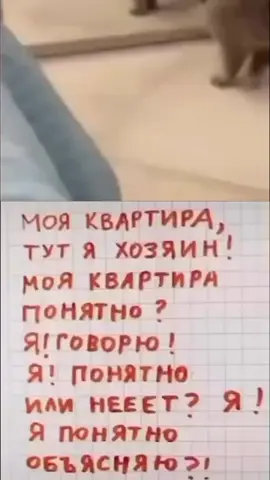 МОЯ КВАРТИРА,
ТУТ Я ХОЗЯИН!
МОЯ КВАРТИРА
ПОНЯТНО?
Я! ГОВОРЮ!
Я! ПОНЯТНО
ИЛИ НЕЕЕТ? Я!
Я ПОНЯТНО
ОБЪЯСНЯЮ?!